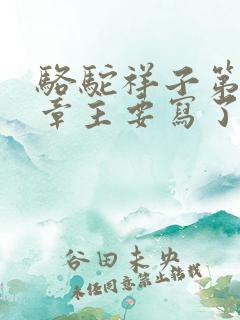 駱駝祥子第
章主要寫了
谷田未央
未經同意禁止轉載